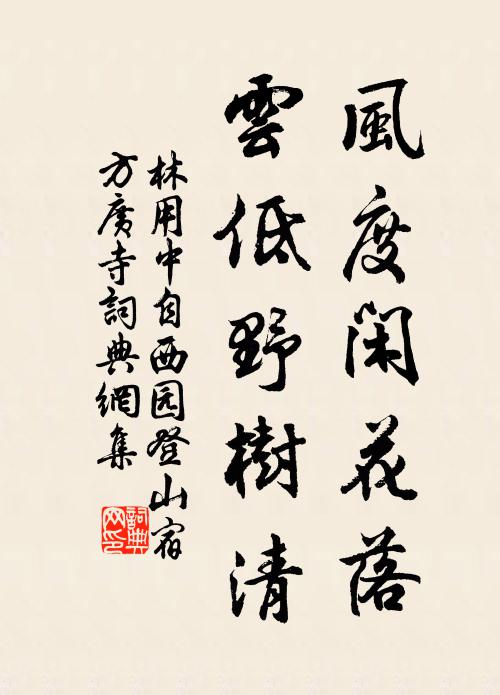 風度閑花落
雲低野樹清
林用中自西园登山宿
方廣寺詞典網集
詞典
网印